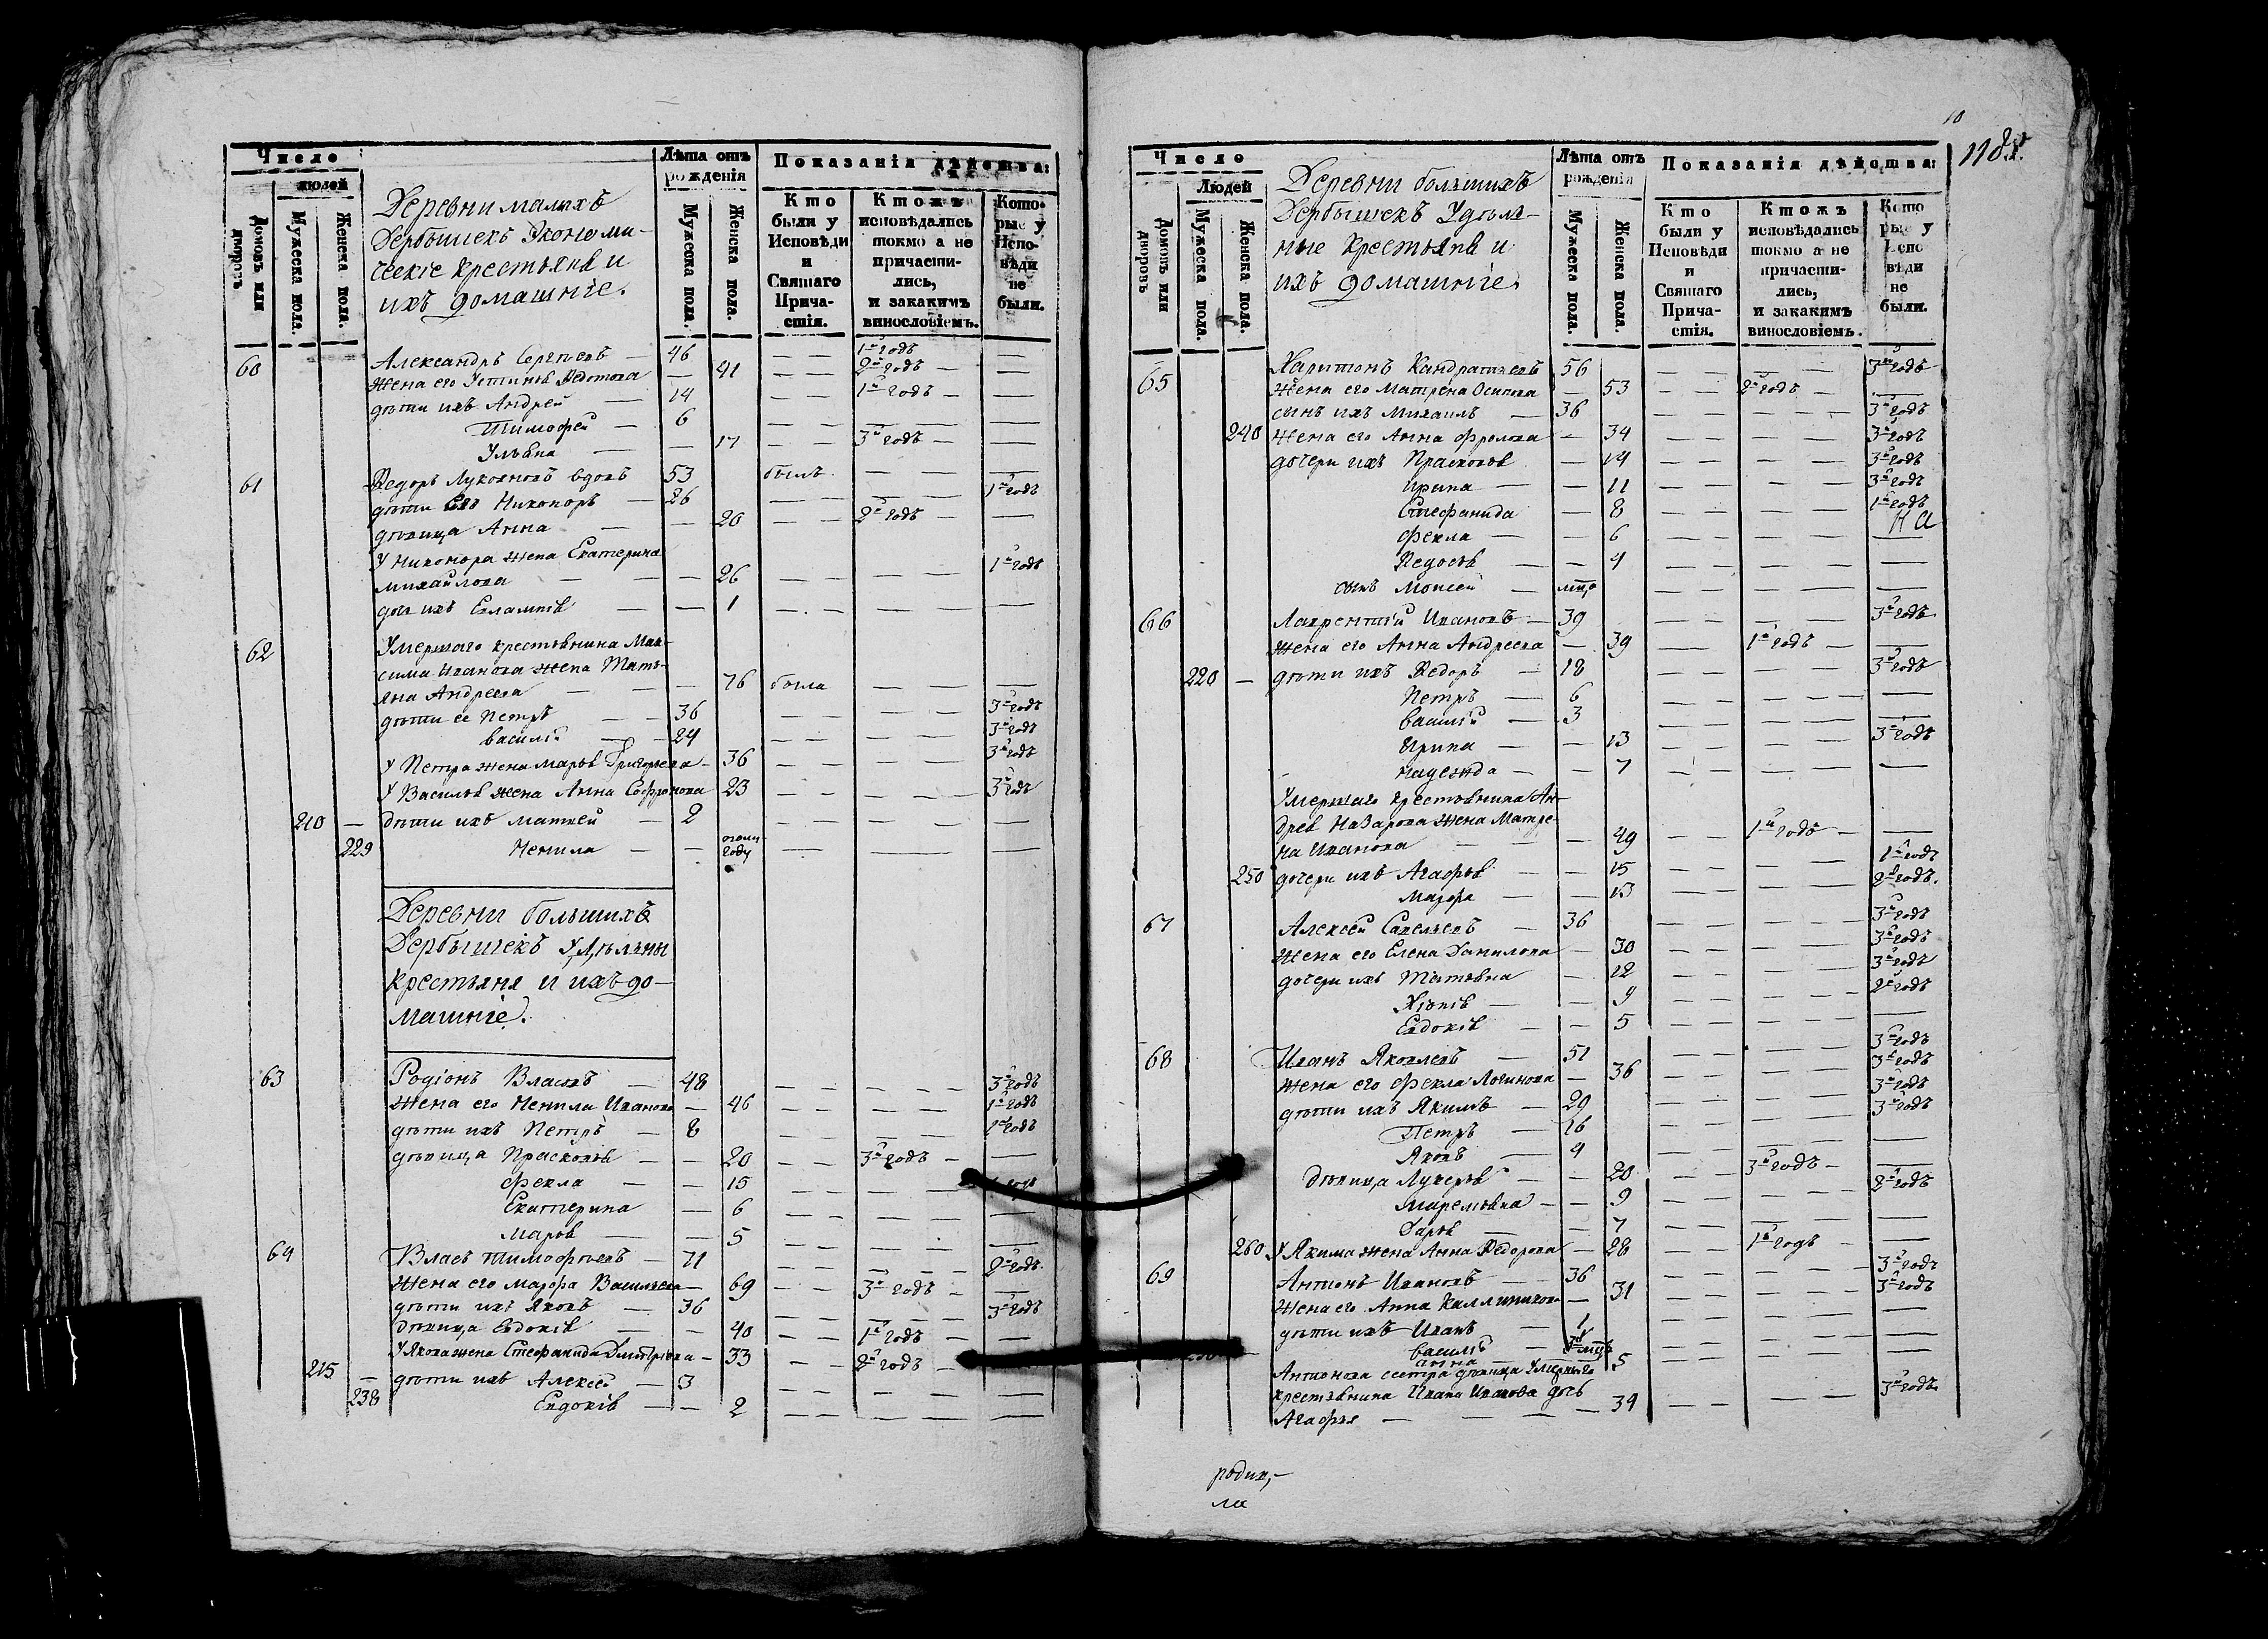 Число
людей
Домовъ или дворовъ
Мужеска пола.
Женска пола.
Деревни малыхъ
Дербышекъ Экономи-
ческіе крестьяне и
ихъ домашніе.
Лѣта отъ рожденія
Мужеска пола.
Женска пола.
Показанія дѣйства:
Кто были у Исповѣди и Святаго Прича-стія.
Ктожъ исповѣдались токмо а не причасти-лись, и закакимъ винословіемъ.
Кото-рые у Испо-вѣди не были.
60 Александръ Сергѣевъ — 46 — — 1й годъ —
Жена его Устинья Федотова — 41 — — 2й годъ — —
дѣти ихъ Андрей — 14 — — 1й годъ — —
Тимофей — 6 — — — —
Ульяна — — 17 — — 3й годъ — —
61 Федоръ Лукояновъ вдовъ 53 былъ — — —
дѣти его Никоноръ — 26 — — — — 1й годъ
дѣвица Анна — — 20 — — 2й годъ — —
У Никонора жена Екатерина
Михайлова — — — 26 — — — — 1й годъ
дочь ихъ Евлампія — — 1 — — — — —
62 Умершаго крестьянина Мак-
сима Иванова жена Тать-
яна Андреева — — — 76 была — —
дѣти ее Петръ — — 36 — — — — 3й годъ
Василій — — 24 — — — — 3й годъ
У Петра жена Марья Григорьева — 36 — — — — 3й годъ
У Василья жена Анна Софронова 23 — — — — 3й годъ
210 — дѣти ихъ Матвей — 2 — — — — —
229 Ненила — — году — — — —
Деревни большихъ
Дербышекъ Удѣльны
крестьяня и ихъ до-
машніе.
63 Родіонъ Власовъ — 48 — — — — 3й годъ
Жена его Ненила Иванова — 46 — — — — 1й годъ
дѣти ихъ Петръ — 8 — — — — 1й годъ
дѣвица Прасковья — — 20 — — 3й годъ — —
Фекла — — 15 — — — — годъ
Екатерина — 6 — — — — —
Марья — — 5 — — — — —
64 Власъ Тимофѣевъ — 71 — — — — 2й годъ
Жена его Марфа Васильева — 69 — — 3й годъ — —
дѣти ихъ Яковъ — 36 — — — — 3й годъ
дѣвица Евдокія — — 40 — — 1й годъ — —
У Якова жена Стефанида Дмитріева — 33 — — 2й годъ —
215 — дѣти ихъ Алексей — 3 — — — — —
238 Евдокія — — 2 — — — — —
10
118.
Число
Людей
Домовъ или дворовъ
Мужеска пола.
Женска пола.
Деревни большихъ
Дербышекъ Удѣль-
ные крестьяне и
ихъ домашніе.
Лѣта отъ рожденія
Мужеска пола.
Женска пола.
Показанія дѣйства:
Кто были у Исповѣди и Святаго Прича-стія.
Ктожъ исповѣдались токмо а не причасти-лись, и закакимъ винословіемъ.
Кото рые у Испо вѣди не были.
65 Харитонъ Кандратьевъ 56 — — — — 3й годъ
Жена его Матрена Осипова — 53 — — 2й годъ — —
сынъ ихъ Михаилъ — 36 — — — — 3й годъ
240 Жена его Анна Фролова — 34 — — — — 3й годъ
дочери ихъ Прасковья — 14 — — — — 3й годъ
Ирина — — 11 — — — — 3й годъ
Стефанида — 8 — — — — 1й годъ
Фекла — — 6 — — — — —
Федосья — — 4 — — — — —
сынъ Моисей — — — — — —
66 Лаврентій Ивановъ — 39 — — — — 3й годъ
Жена его Анна Андреева — 39 — — 1й годъ — —
220 — дѣти ихъ Федоръ — 18 — — — — 3й годъ
Петръ — 6 — — — — —
Василій — 3 — — — — —
Ирина — — 13 — — — — 3й годъ
Надежда — — 7 — — — — —
Умершаго крестьянина Ан-
дрея Назарова жена Матре-
на Иванова — — — 49 — — 1й годъ — —
250 дочери ихъ Агафья — — 15 — — — — 1й годъ
Марфа — — 13 — — — — 2й годъ.
67 Алексей Савельевъ — 36 — — — — 3й годъ
Жена его Елена Данилова — 30 — — — — 3й годъ
дочери ихъ Татьяна — 12 — — — — 3й годъ
Хіонія — — 9 — — — — 2й годъ
Евдокія — — 5 — — — — —
68 Иванъ Яковлевъ — 51 — — — — 3й годъ
Жена его Фекла Логинова — 36 — — — — 3й годъ
дѣти ихъ Якимъ — 20 — — — — 3й годъ
Петръ — 16 — — — — 3й годъ
Яковъ — 4 — — — — —
дѣвица Лукерья — — 20 — — 3й годъ — —
Маремьяна — — 9 — — — — 2й годъ
Дарья — — 7 — — — — —
260 У Якима жена Анна Федорова — 28 — — 1й годъ — —
69 Антонъ Ивановъ — — 36 — — — — 3й годъ
Жена его Анна Каллиникова — 31 — — — — 3й годъ
дѣти ихъ Иванъ — 1 — — — — —
Василій — — — — — —
Анна — — 5
Антонова сестра дѣвица Умершаго
крестьянина Ивана Иванова дочь
Агафья — — — — 34 — — — — 3й годъ.